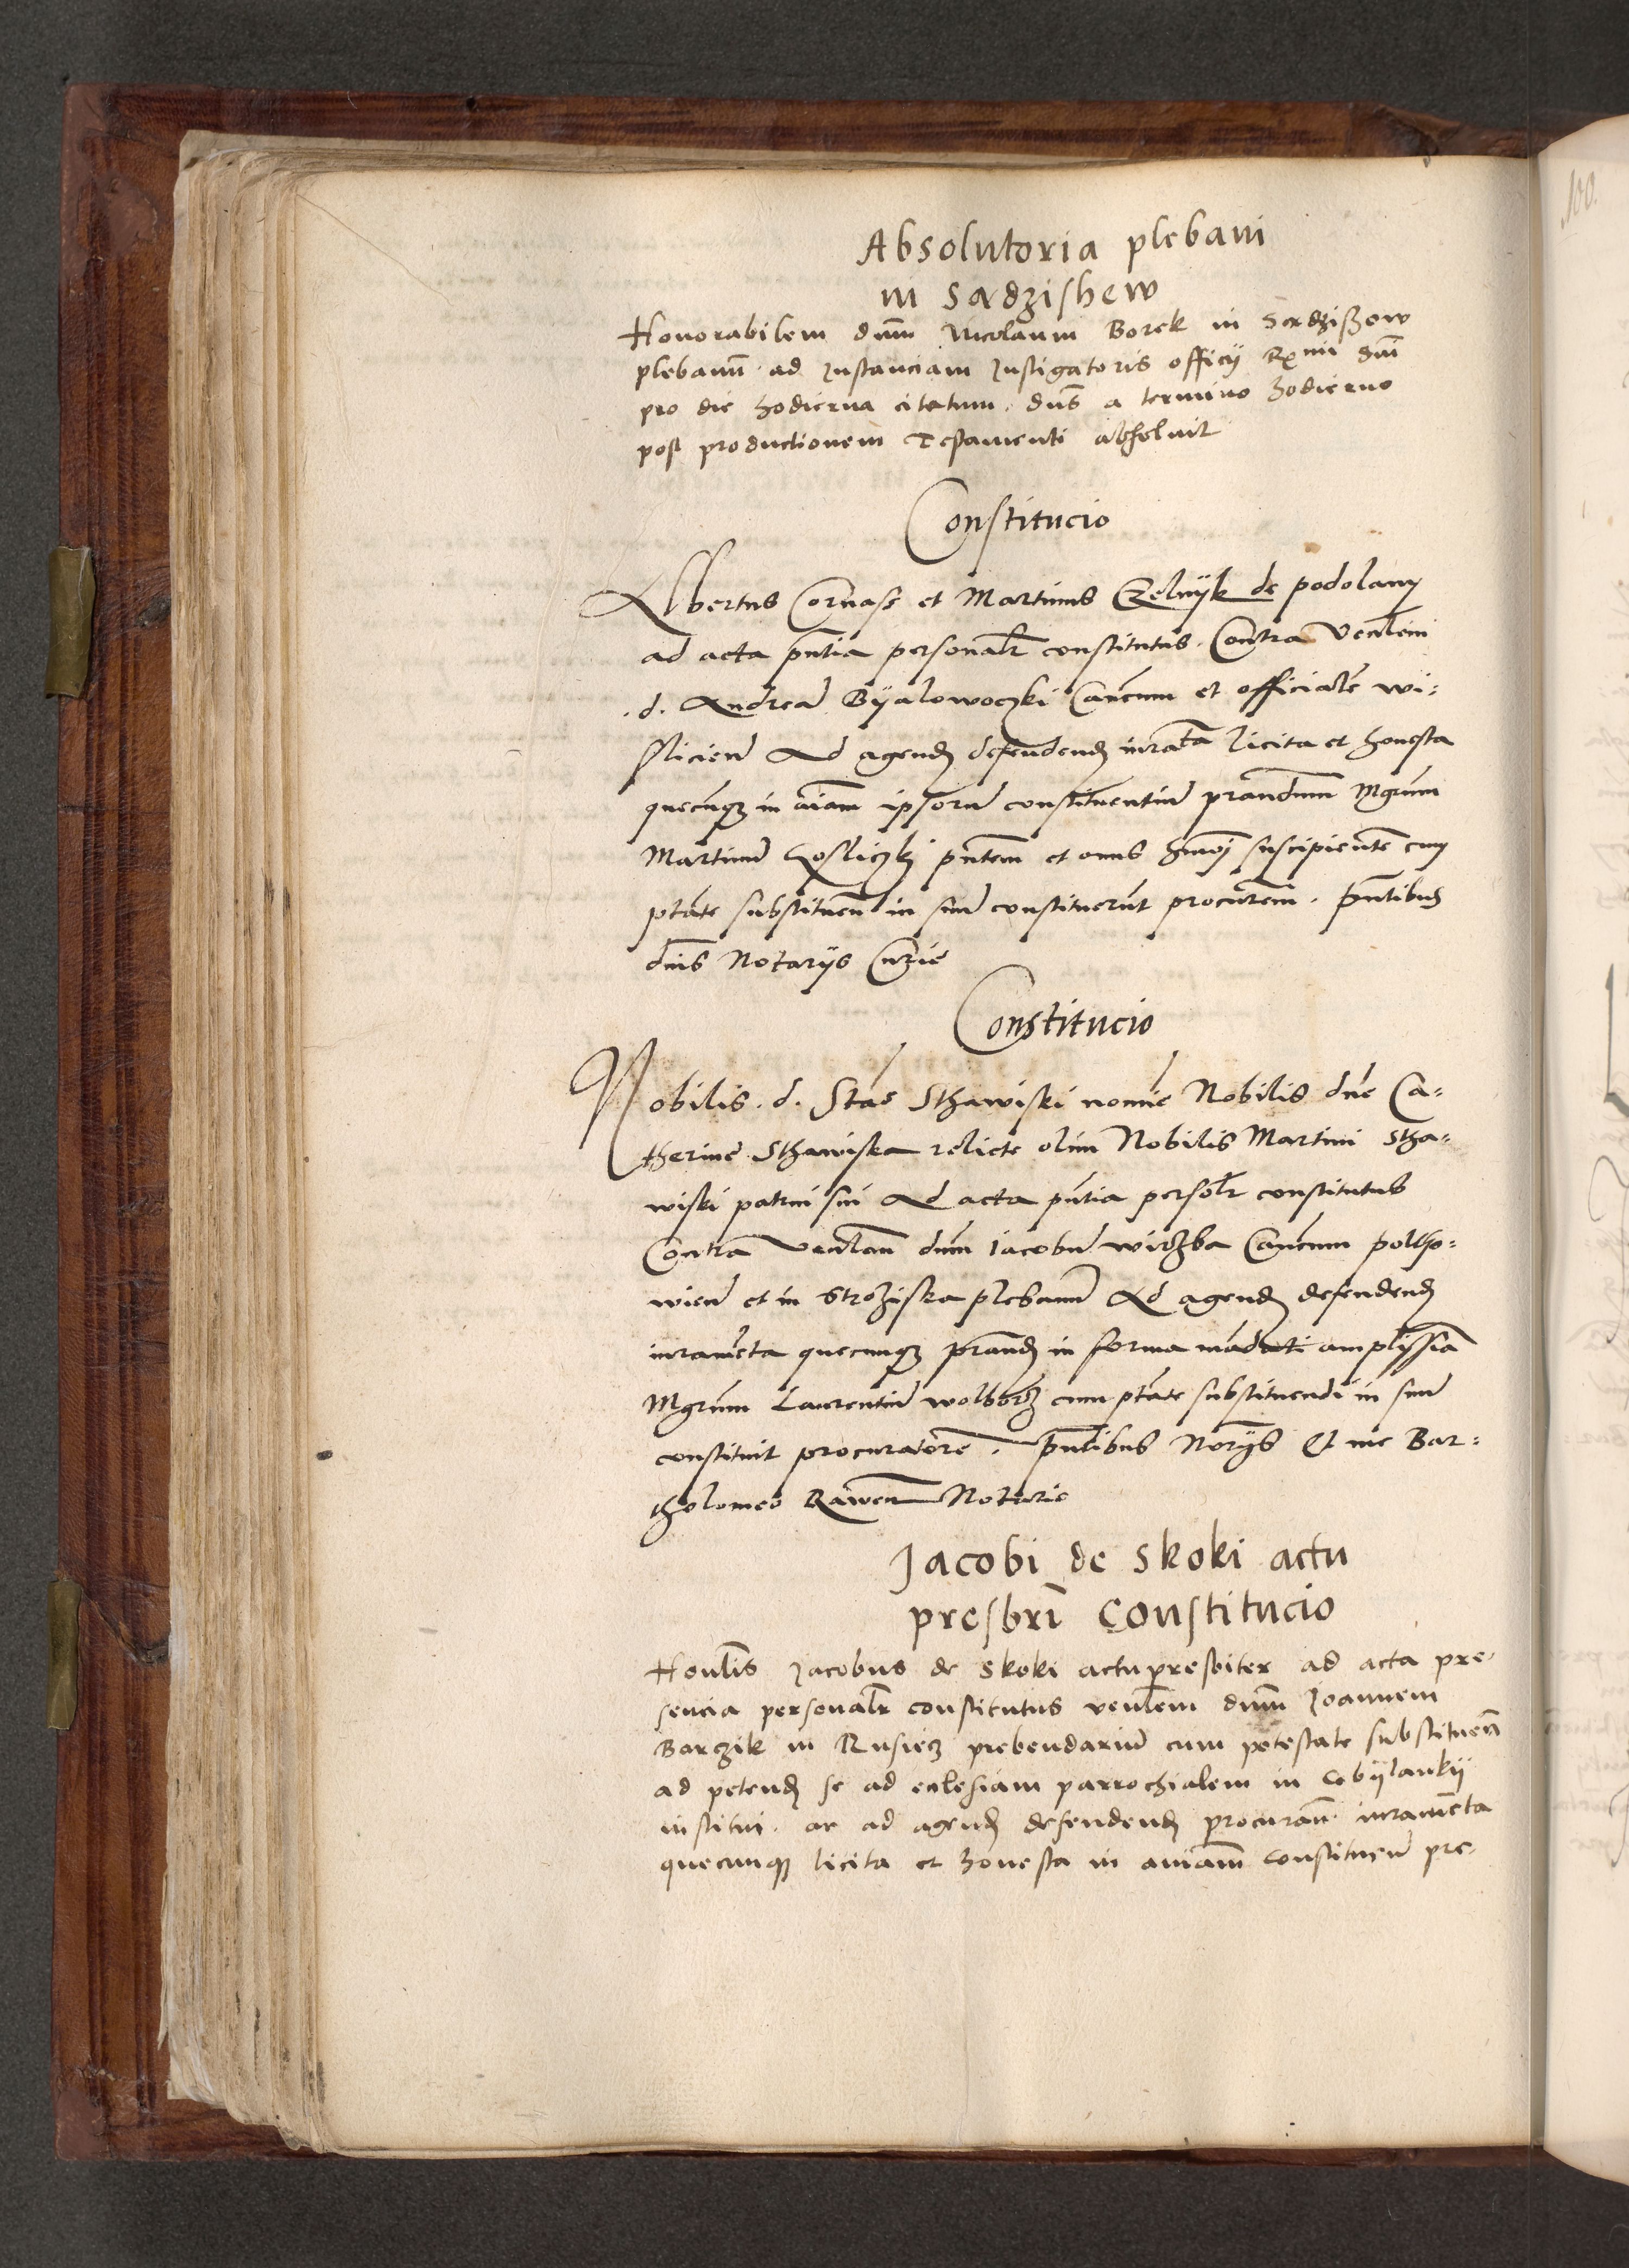 Absolutoria plebani
in Sadzishew
Honorabilem dnm Nicolaum Borek in Sadzißow
plebanū ad Instanciam Instigatoris officÿ Rmi dni
pro die hodierna citatum. dns a termino hodierno
post productionem Testamenti absoluit
Constitucio
Albertus Cornass et Martinus Czelnÿk de podolany
ad acta pntia personalr constitutus. Contra Venlem
.d. Andreā Bÿalowoczki Canēum et officialē wi:
sliciēn Ad agend defendend iurata licita et honesta
quecūqz in aīam ipsorū constituentiū prandum Mgrum
Martinū Gosliczki pntem et onus hmōi suscipientē cum
ptāte substituen in sm̄ constituerūt procurēm. pntibus
dnis Notarÿs Curie
Constitucio
Nobilis .d. Stās Sthawiski nomīe Nobilis dne Ca:
therine Sthawiska relicte olim Nobilis Martini Stha:
wiski patrui sui Ad acta pntia persolr constitutus
Contra Venlem dnm Iacobū wirzba Canēum poltho:
wien et in Strozıska plebanū Ad agend defendend
iuramēta quecunqz prand in forma mādati amplissia
Mgrum Laurentiū wolborz cum ptāte substituendi in sm̄
constituit procuratorē. pntibus Norÿs Et me Bar:
tholomeo Rawen Notario
Jacobi de Skoki actu
presbri Constitucio
Honlis Jacobus de Skoki actu presbiter ad acta pre:
sencia personalr constitutus venlem dnm Joannem
Barczik in Rusiecz prebendariū cum potestate substituen
ad petend se ad eclesiam parrochialem in Cobÿlankÿ
institui. ac ad agend defendend procuran iuramēta
quecunqz licita et honesta in aniam constituen pre: